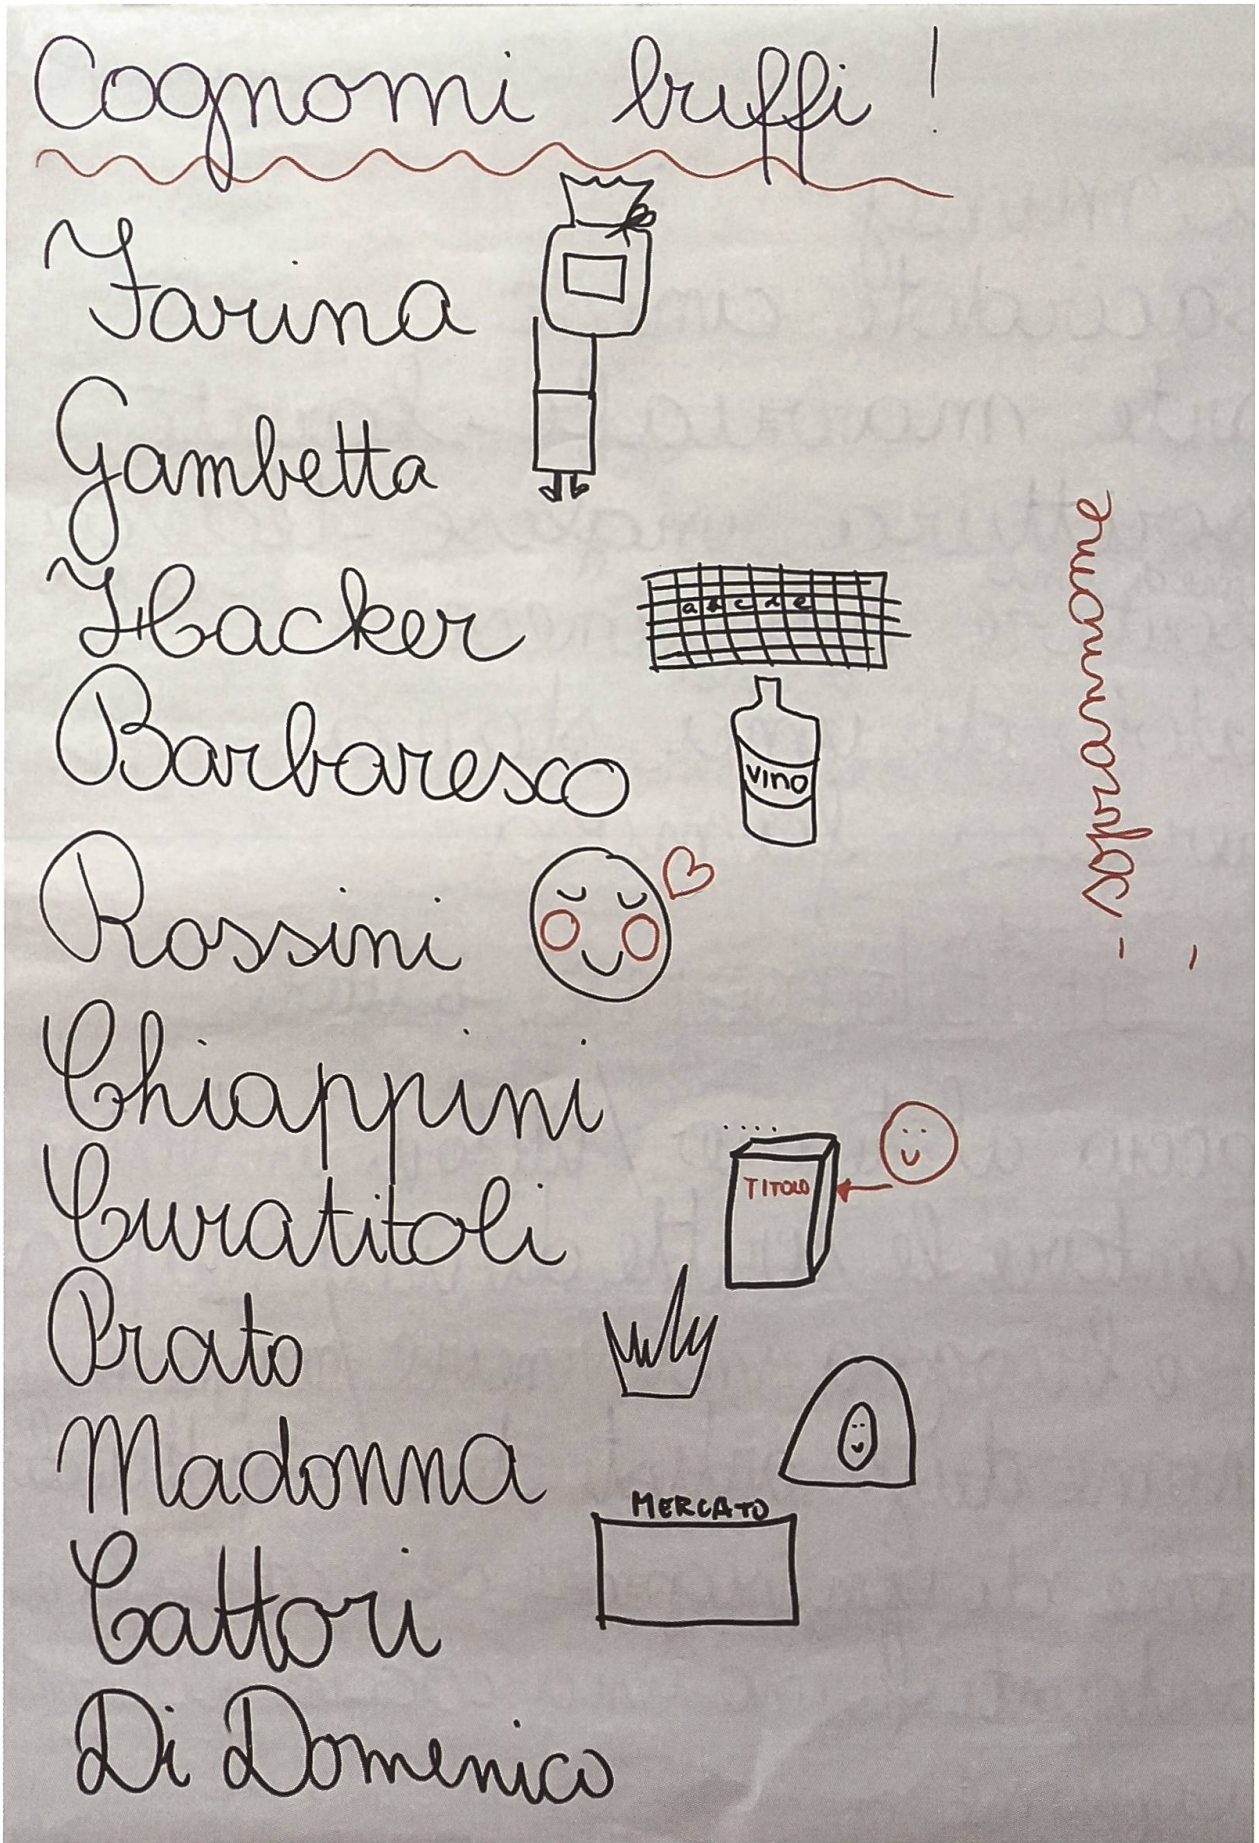 Cognomi buffi!
Farina
Gambetta
Hacker
a b c d e
Barbaresco
VINO
Rossini
Chiappini
Curatitoli
TITOLO
Prato
Madonna
MERCATO
Cattori
Di Domenico
- soprannome